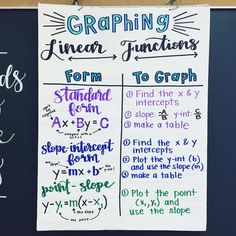 GRAPHING
Linear Functions
Form
To Graph
Standard form
Ax+By=C
① Find the x & y intercepts
② slope: -A/B y-int: C/B
③ make a table
slope-intercept form
y=mx+b
① Find the x & y intercepts
② Plot the y-int (b) and use the slope (m)
③ make a table
point-slope
y-y₁=m(x-x₁)
① Plot the point (x₁,y₁) and use the slope